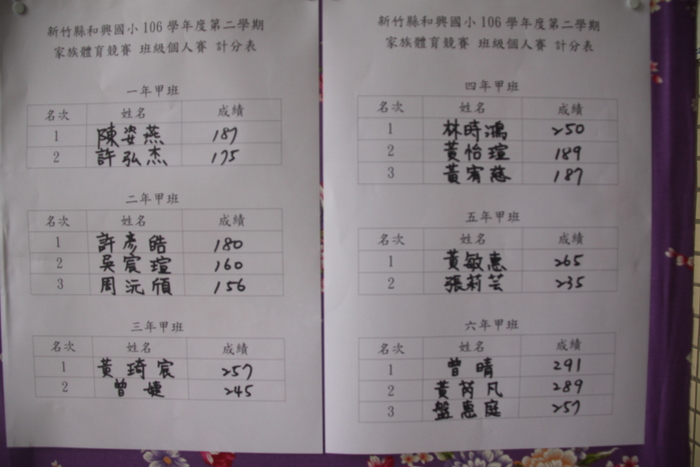 新竹縣和興國小106學年度第二學期
家族體育競賽 班級個人賽 計分表
一年甲班
名次 姓名 成績
1 陳姿燕 187
2 許弘杰 175
二年甲班
名次 姓名 成績
1 許彥皓 180
2 吳宸瑄 160
3 周沅頎 156
三年甲班
名次 姓名 成績
1 黃琦宸 257
2 曾婕 245
新竹縣和興國小106學年度第二學期
家族體育競賽 班級個人賽 計分表
四年甲班
名次 姓名 成績
1 林時鴻 250
2 黃怡瑄 189
3 黃宥慈 187
五年甲班
名次 姓名 成績
1 黃敏惠 265
2 張莉芸 235
六年甲班
名次 姓名 成績
1 曾晴 291
2 黃芮凡 289
3 盤惠庭 257